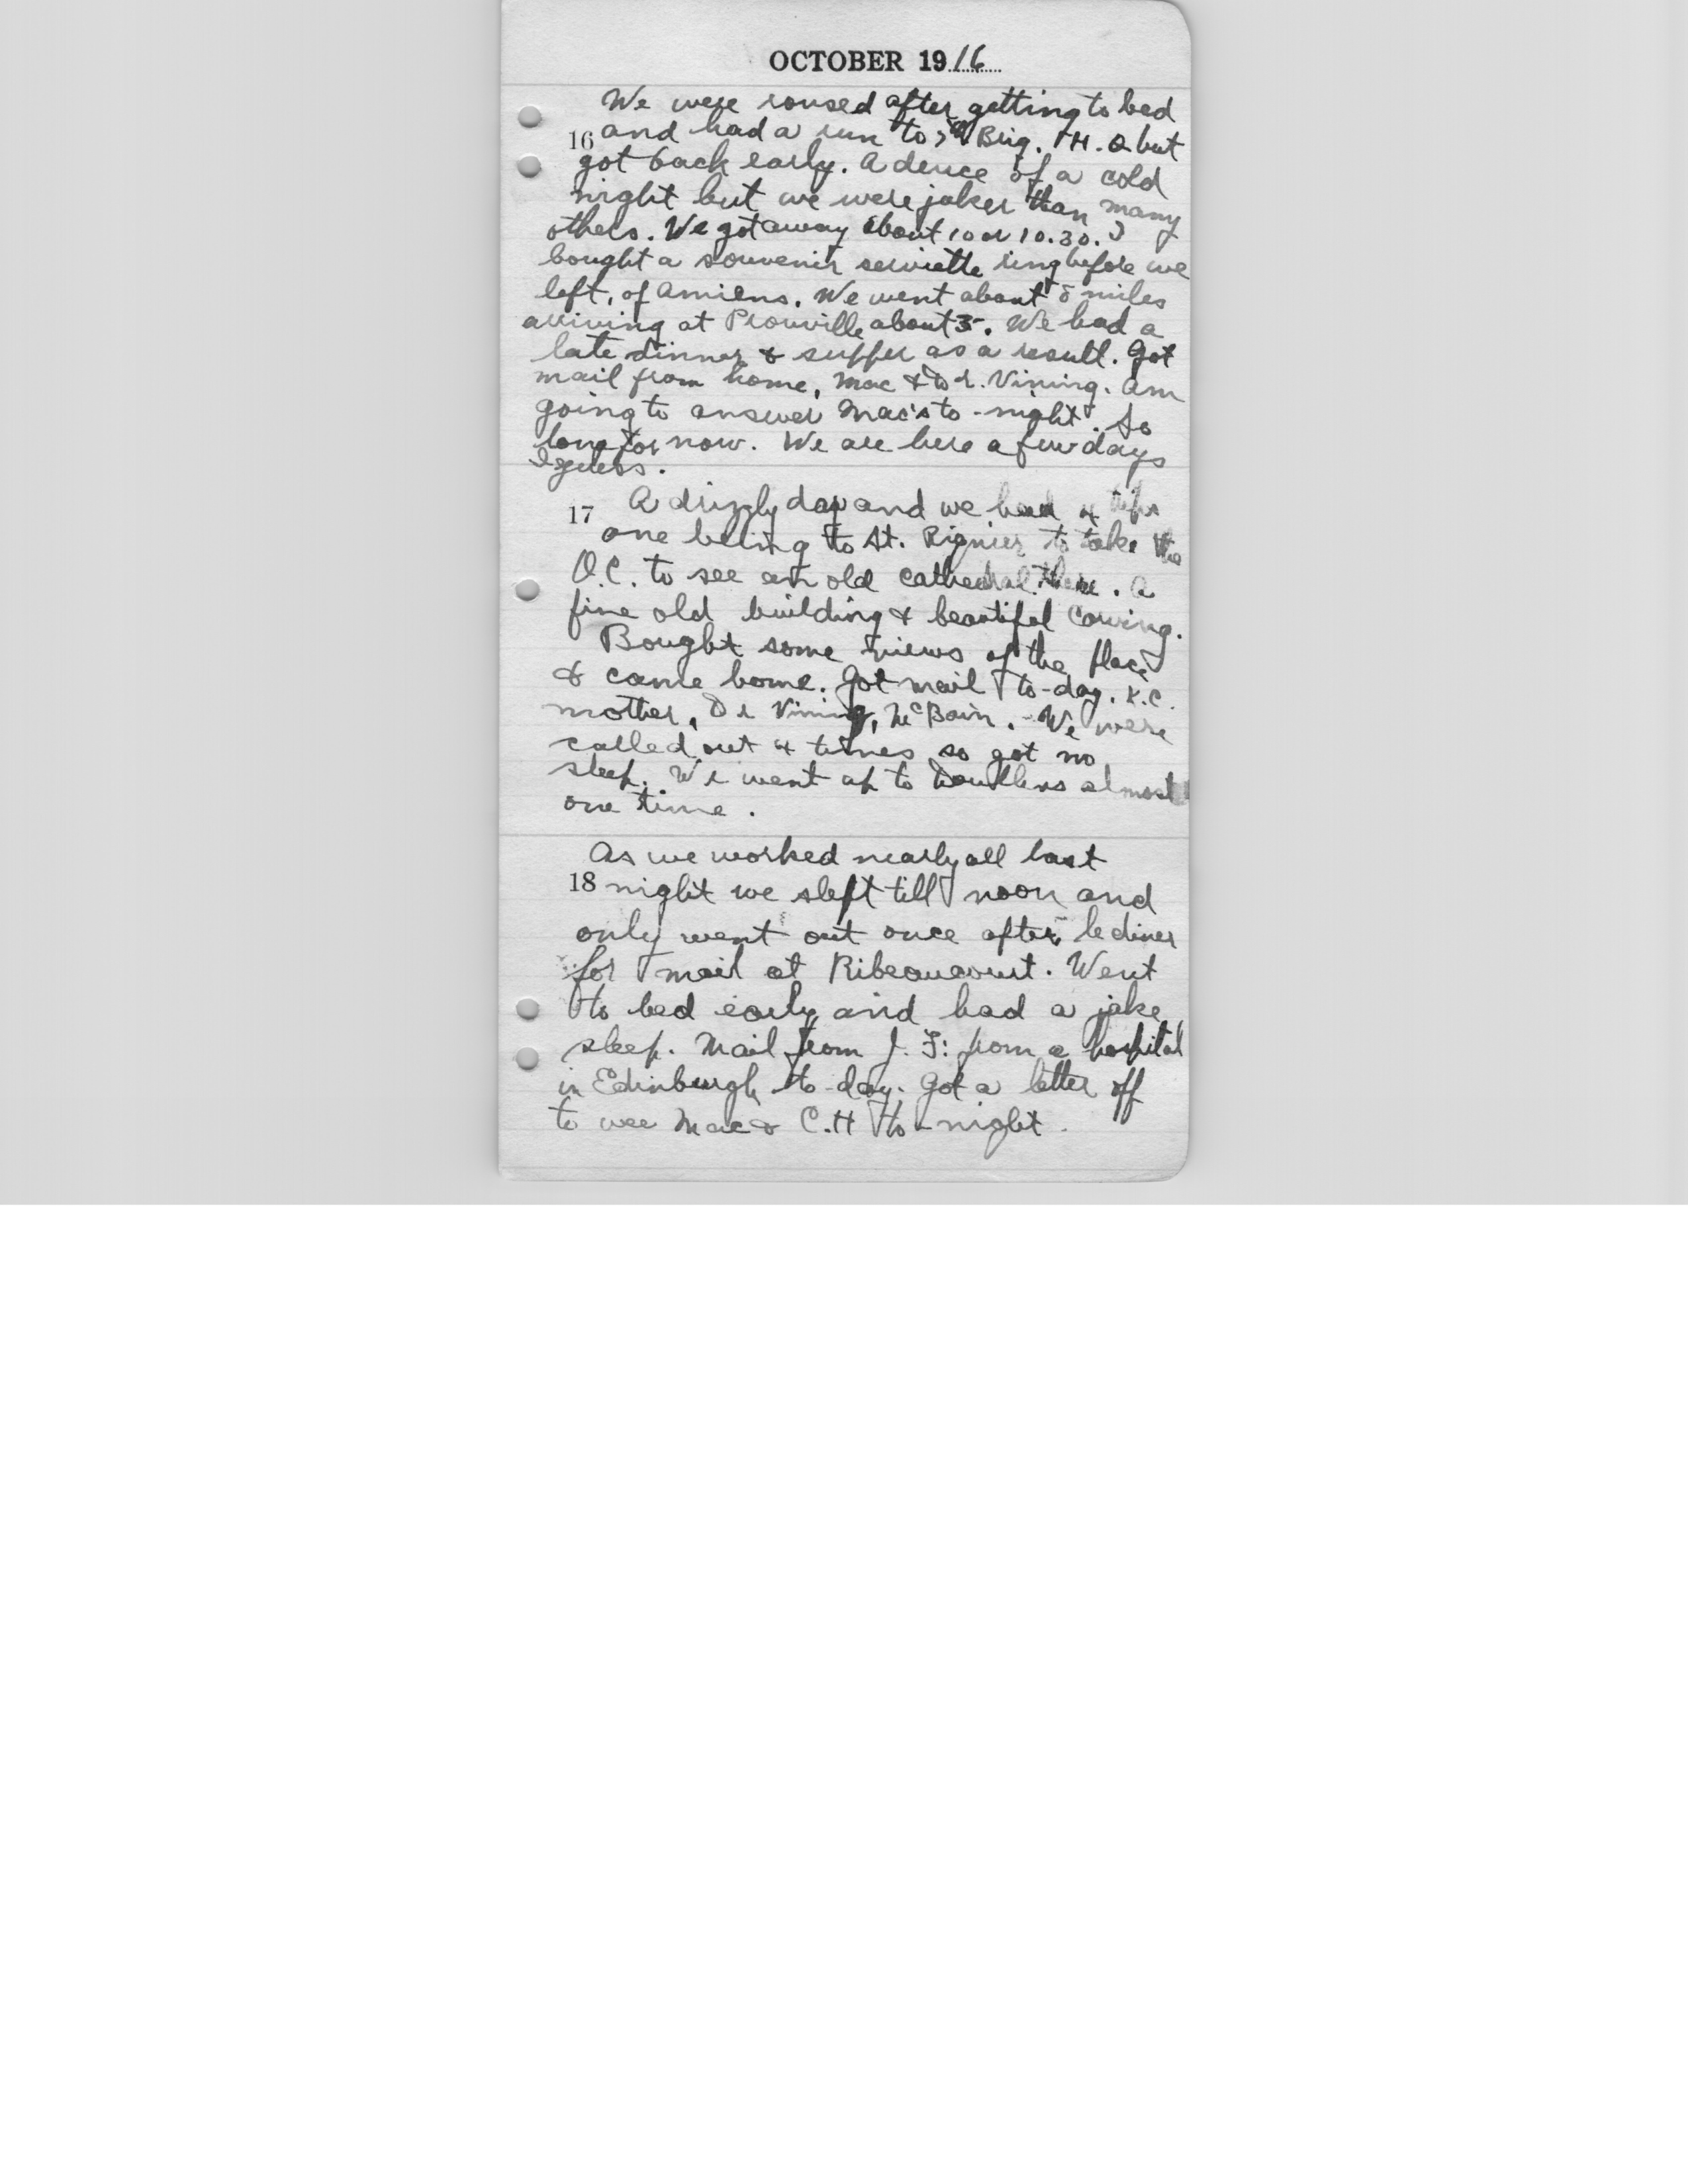 OCTOBER 1916
We were roused after getting to bed
16 and had a run to Brig. H.Q but
got back early. A deuce of a cold
night but we were jaker than many
others. We got away about 10 or 10.30. I
bought a souvenir serviette ring before we
left, of Amiens. We went about 8 miles
arriving at Prouville about . We had a
late dinner & supper as a result. Got
mail from home, Mac & Dr. Vining. Am
going to answer Mac's to-night. So
long for now. We are here a few days
I guess.
17 A drizzly day and we had 4
one being to St. Riquier to take the
O.C. to see an old cathedral there. A
fine old building & beautiful carving.
Bought some views of the place
& came home. Got mail to-day. K.C.
mother, Dr Vining, McBain. - We were
called out 4 times so got no
sleep. We went up to Doullens almost
one time.
As we worked nearly all last
18 night we slept till noon and
only went out once after le diner
for mail at Ribeaucourt. Went
to bed early and had a jake
sleep. Mail from J. F. from a hospital
in Edinburgh to-day. Got a letter off
to wee Mac & C.H to-night.